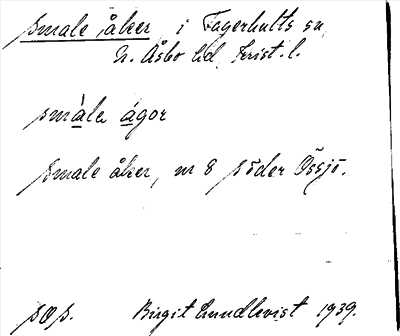 smale åker i Fagerhults sn,
N. Åsbo hd, Krist. l.
småla ágor
smale åker, nr 8 söder Össjö.
sos. Birgit Lundkvist 1939.